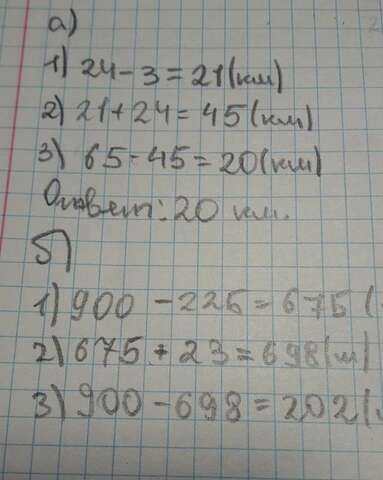 а)
1) 24 - 3 = 21 (км)
2) 21 + 24 = 45 (км)
3) 65 - 45 = 20 (км)
Ответ: 20 км.
б)
1) 900 - 225 = 675 (
2) 675 + 23 = 698 (м)
3) 900 - 698 = 202 (